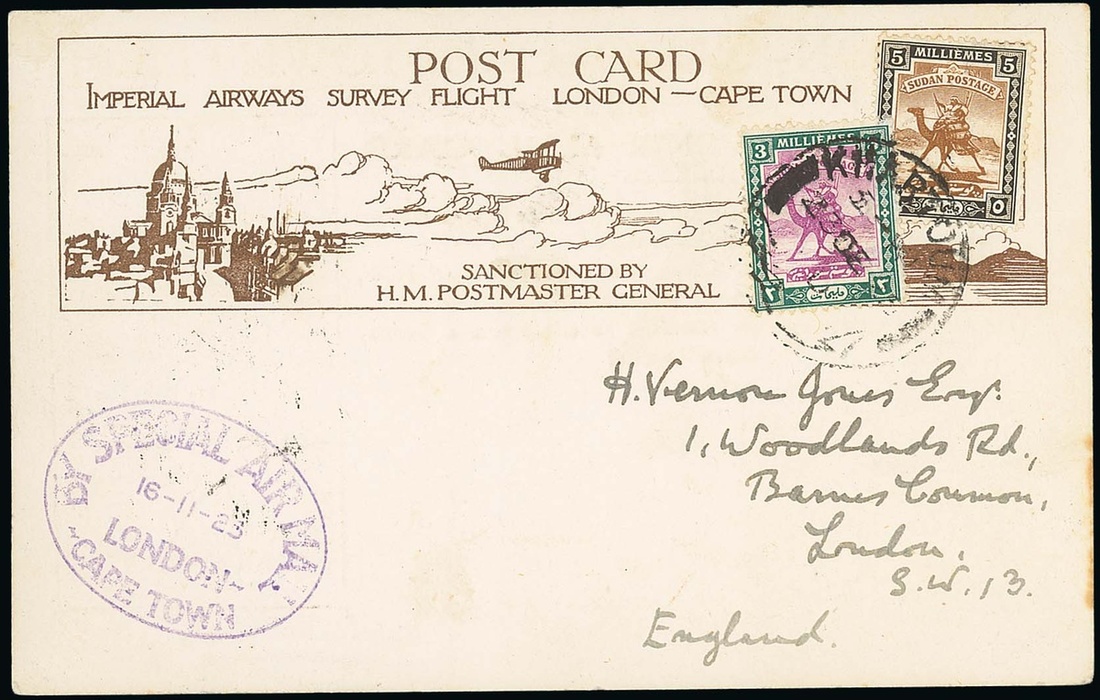 POST CARD
IMPERIAL AIRWAYS SURVEY FLIGHT LONDON — CAPE TOWN
SANCTIONED BY
H.M. POSTMASTER GENERAL
5 MILLIÈMES 5
SUDAN POSTAGE
٥
3 MILLIÈMES
٣ ٣
KHARTOUM
H. Vernon Jones Esqr.
1, Woodlands Rd.,
Barnes Common,
London.
S.W. 13.
England.
BY SPECIAL AIR MAIL
16-11-25
LONDON-
-CAPE TOWN